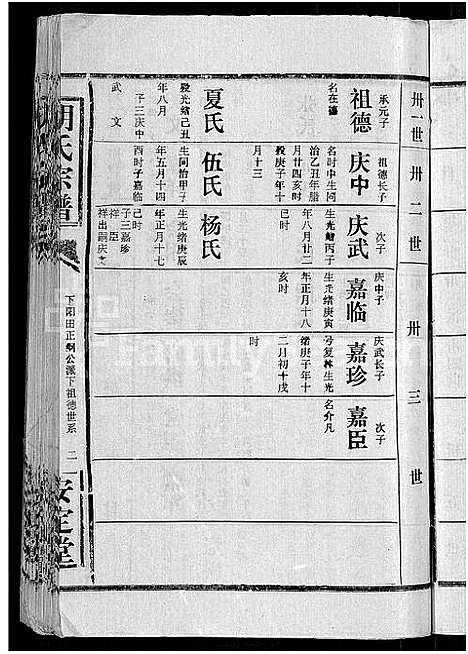 卅一世
卅二世
卅三世
承元子
祖德
名在德
夏氏
殁光绪己丑
年八月
子三庆中
武 文
祖德长子
庆中
名时中生同
治乙丑年腊
月廿四亥时
殁庚子年十
月十三
伍氏
生同治甲子
年五月十四
酉时子嘉临
次子
庆武
生光绪丙子
年八月廿二
巳时
杨氏
生光绪庚辰
年正月十七
巳时
子三嘉珍
祥臣
祥出嗣庆文
庆中子
嘉临
生光绪庚寅
年正月十八
亥时
庆武长子
嘉珍
号复林生光
绪庚子年十
二月初十戌
时
次子
嘉臣
名介凡
胡氏宗谱
下阳田正纲公派下祖德世系
二
安定堂